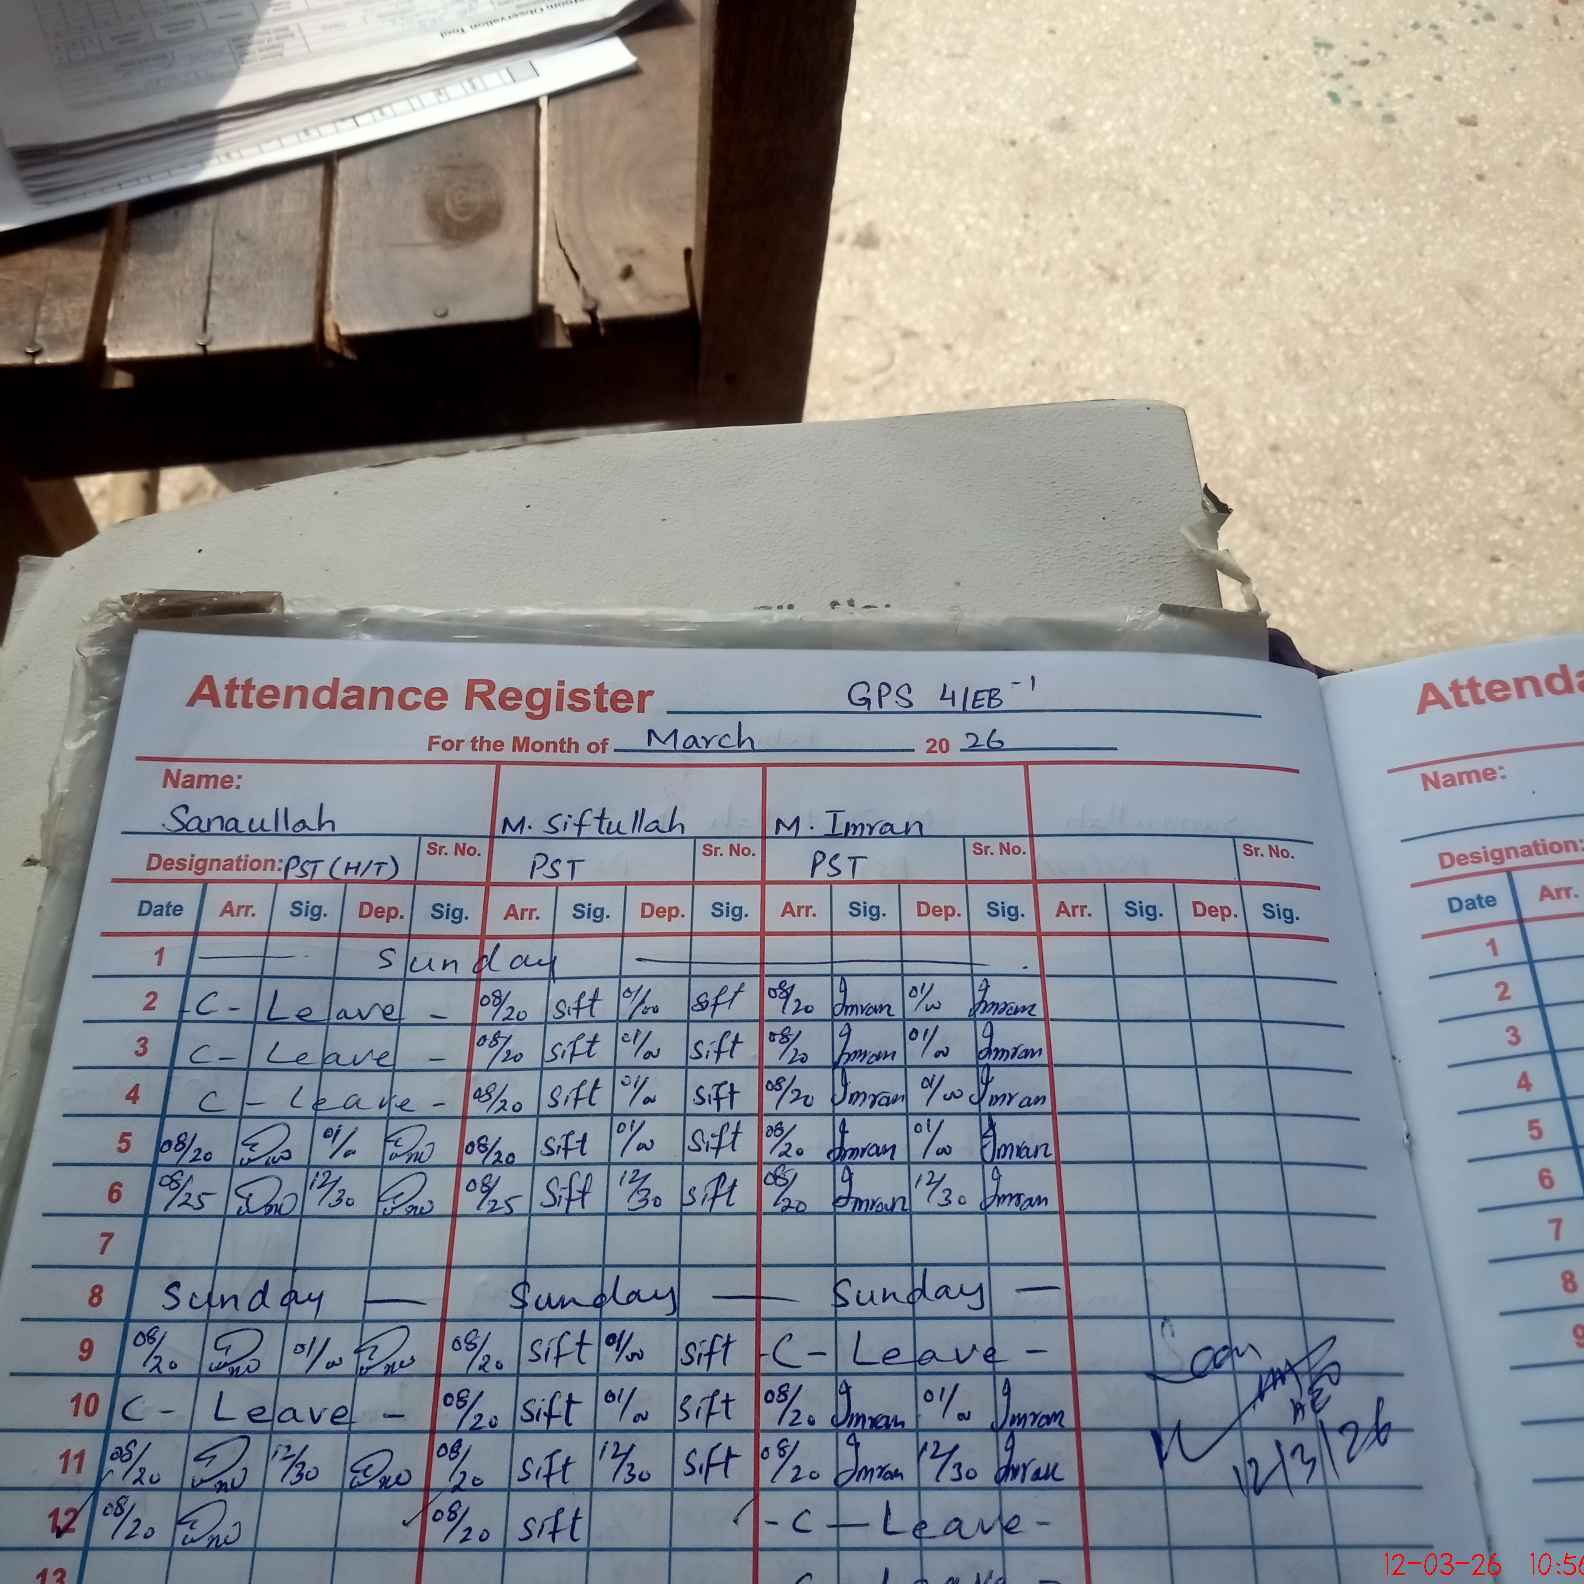 Classroom Observation Tool
Attendance Register GPS 4/EB-1
For the Month of March 20 26
Name:
Sanaullah M. Siftullah M. Imran
Designation: PST (H/T) Sr. No. PST Sr. No. PST Sr. No. Sr. No.
Date Arr. Sig. Dep. Sig. Arr. Sig. Dep. Sig. Arr. Sig. Dep. Sig. Arr. Sig. Dep. Sig.
1 Sunday
2 C- Leave - 08/20 Sift 01/00 Sift 08/20 Imran 01/00 Imran
3 C- Leave - 08/20 Sift 01/00 Sift 08/20 Imran 01/00 Imran
4 C- Leave - 08/20 Sift 01/00 Sift 08/20 Imran 01/00 Imran
5 08/20 01/00 08/20 Sift 01/00 Sift 08/20 Imran 01/00 Imran
6 08/25 12/30 08/25 Sift 12/30 Sift 08/20 Imran 12/30 Imran
7
8 Sunday — Sunday — Sunday —
9 08/20 01/00 08/20 Sift 01/00 Sift -C- Leave -
10 C- Leave - 08/20 Sift 01/00 Sift 08/20 Imran 01/00 Imran
11 08/20 12/30 08/20 Sift 12/30 Sift 08/20 Imran 12/30 Imran
12 08/20 08/20 Sift -C- Leave -
13
AEO
12/3/26
Attenda
Name:
Designation:
Date Arr.
1
2
3
4
5
6
7
8
9
12-03-26 10:56